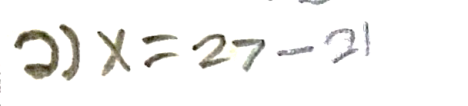 2) x = 27 - 21